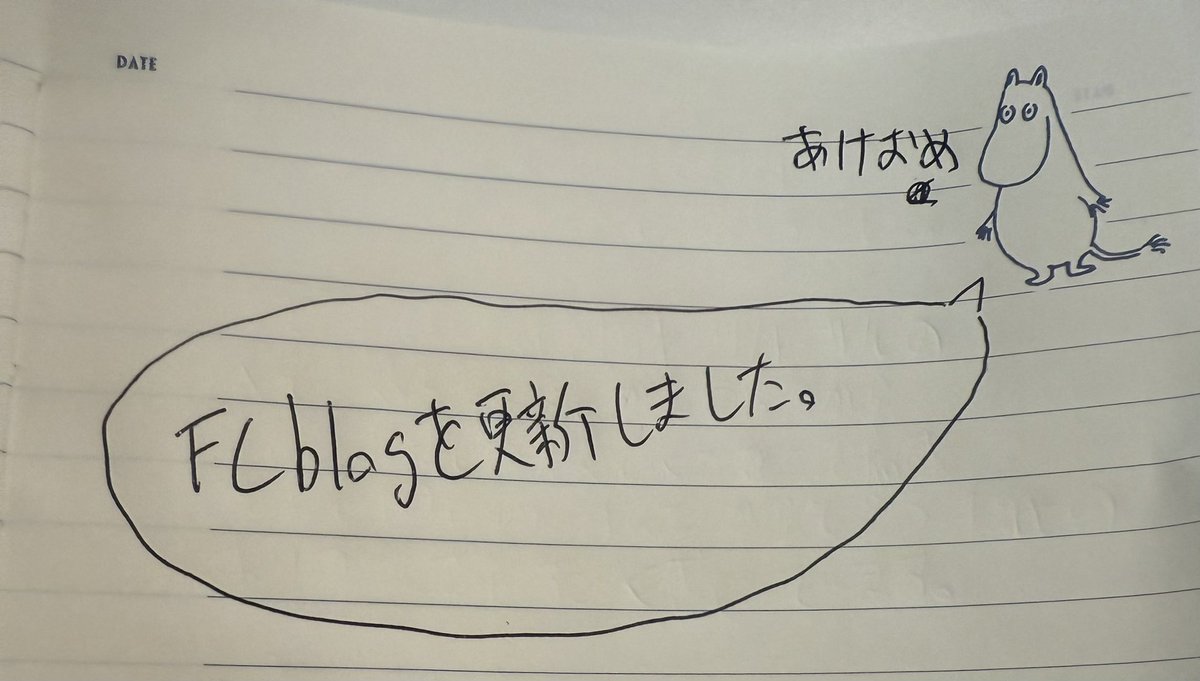 DATE
あけおめ
FCblogを更新しました。